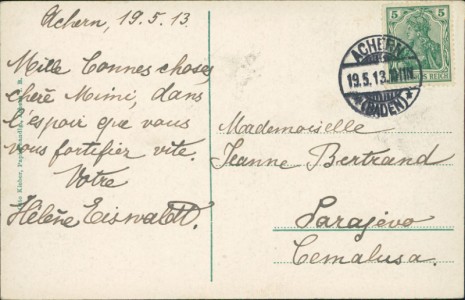 Achern, 19.5.13.
Mille bonnes choses
chère Mimi, dans
l'espoir que vous
vous fortifier vite.
Votre
Hélène Eiswaldt.
Mademoiselle
Jeanne Bertrand
Sarajevo
Cemalusa.
5 5
ACHERN
19.5.13.
(BADEN)
REICH